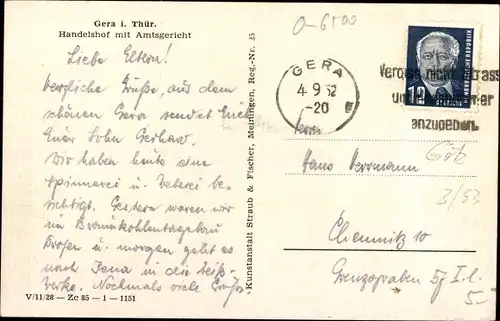 Gera i. Thür.
Handelshof mit Amtsgericht
Liebe Eltern!
Herzliche Grüße, aus dem
schönen Gera sendet Euch
Euer Sohn Gerhard.
Wir haben heute eine
Spinnerei u. Weberei be-
sichtigt. Gestern waren wir
im Braunkohlentagebau
u. morgen geht es
nach Jena in die Zeiß-
werke. Nochmals viele Grüße
V/11/28 - Zc 85 - 1 - 1151
Kunstanstalt Straub & Fischer, Meiningen, Reg.-Nr. 25
0-6500
GERA
4.9.52
-20
12
DEUTSCHE
Vergiss nicht Strass
und
anzugeben.
Herrn
Hans Herrmann
Götz
3/53
Chemnitz 10
Grenzgraben 57 I. l.
5-